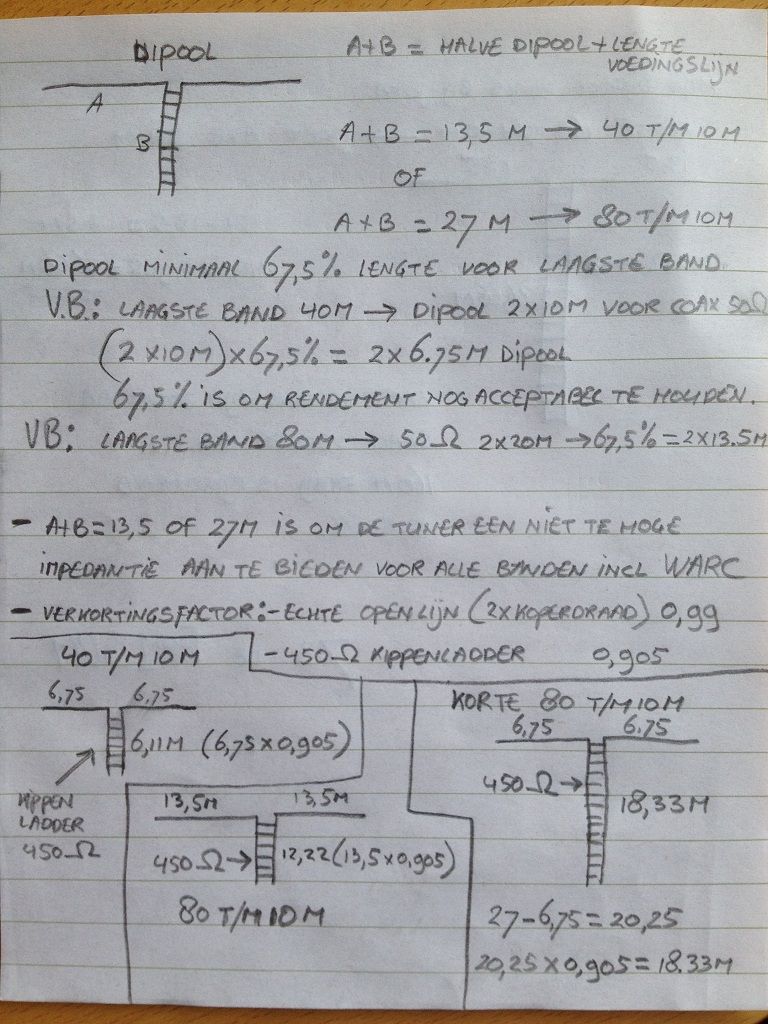 DIPOOL
A+B = HALVE DIPOOL + LENGTE
VOEDINGSLIJN
A
B
A+B = 13,5 M → 40 T/M 10 M
OF
A+B = 27 M → 80 T/M 10M
DIPOOL MINIMAAL 67,5% LENGTE VOOR LAAGSTE BAND
V.B.: LAAGSTE BAND 40M → DIPOOL 2x10M VOOR COAX 50Ω
(2 x10M) x 67,5% = 2x6.75M DIPOOL
67,5% IS OM RENDEMENT NOG ACCEPTABEL TE HOUDEN.
VB: LAAGSTE BAND 80M → 50Ω 2x20M → 67,5% = 2x13.5M
- A+B = 13,5 OF 27M IS OM DE TUNER EEN NIET TE HOGE
IMPEDANTIE AAN TE BIEDEN VOOR ALLE BANDEN INCL WARC
- VERKORTINGSFACTOR: - ECHTE OPEN LIJN (2x KOPERDRAAD) 0,99
- 450Ω KIPPENLADDER 0,905
40 T/M 10M
6,75 6,75
6,11M (6,75 x 0,905)
KIPPEN
LADDER
450Ω
13,5M 13,5M
450Ω→ 12,22 (13,5 x 0,905)
80 T/M 10M
KORTE 80 T/M 10M
6,75 6.75
450Ω→ 18,33M
27 - 6,75 = 20,25
20,25 x 0,905 = 18.33M